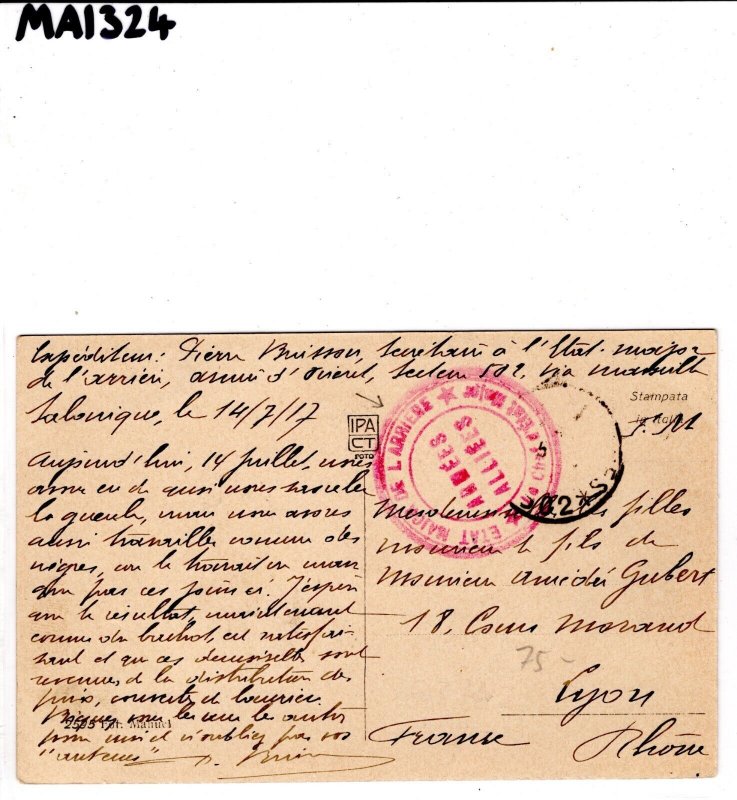 MAI324
Expéditeur: Pierre Buisson, Secrétaire à l'Etat-major
de l'arrière, armée d'Orient, Secteur 502, via Marseille
Salonique, le 14/7/17
Stampata
in Italia
F.M
IPA
CT
FOTO
ETAT MAJOR DE L'ARRIERE
ARMEES
ALLIEES
502
Aujourd'hui, 14 juillet, nous
avons eu de quoi nous
la gueule, mais nous avons
aussi travaillé comme des
nègres, car le travail ne man
que pas ces jours ci. J'espère
que le résultat, maintenant
connu du bachot, est satisfai-
sant et que ces demoiselles sont
revenues de la distribution des
prix, couvertes de lauriers.
les uns les autres
pour moi et n'oubliez pas vos
"
2595 Edr. Manuel
Mesdemoiselles les filles
monsieur le fils de
Monsieur Amédée Gubert
18, Cours Morand
75-
Lyon
France Rhône